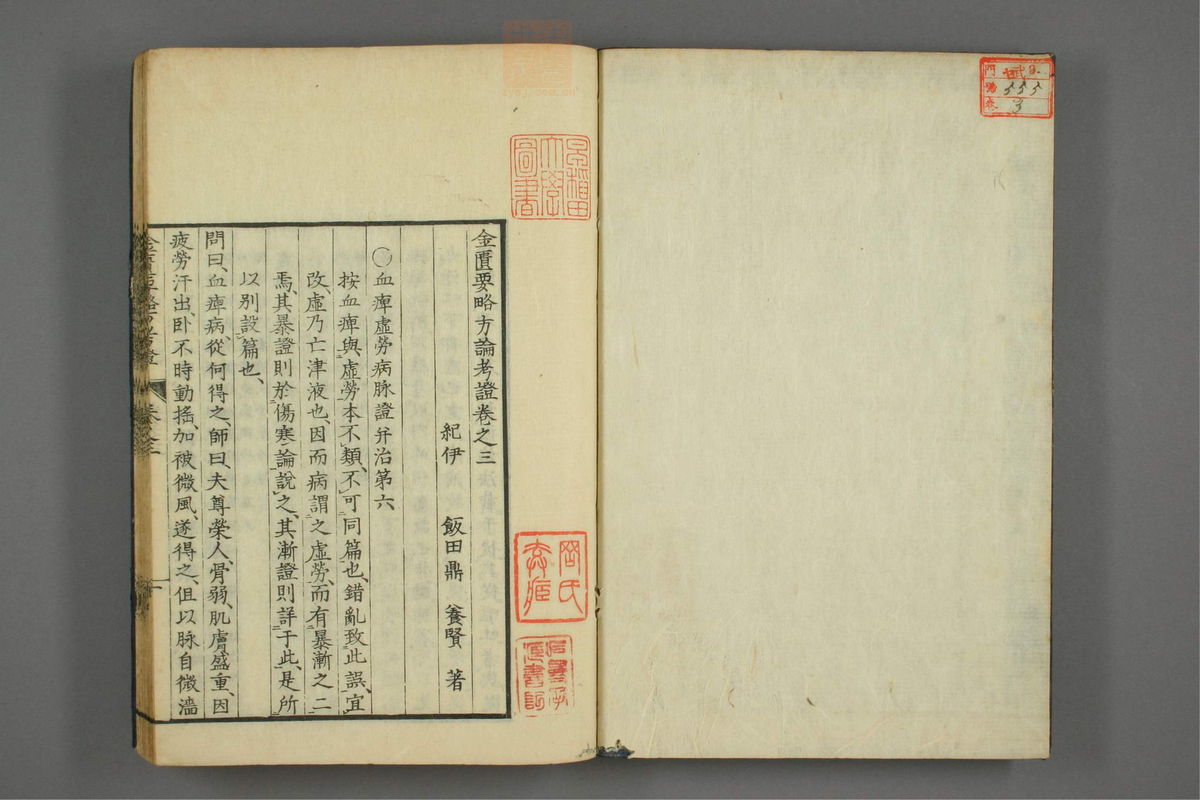 門 武9
號 555
卷 3
早稲田
大學
圖書
金匱要略方論考證卷之三
紀伊 飯田鼎 養賢 著
○血痺虛勞病脉證并治第六
按血痺與虛勞本不類、不可同篇也、錯亂致此誤、宜
改、虛乃亡津液也、因而病謂之虛勞、而有暴漸之二
焉、其暴證則於傷寒論說之、其漸證則詳于此、是所
以別設篇也、
問曰、血痺病、從何得之、師曰、夫尊榮人、骨弱、肌膚盛重、因
疲勞汗出、卧不時動搖、加被微風、遂得之、但以脉自微濇